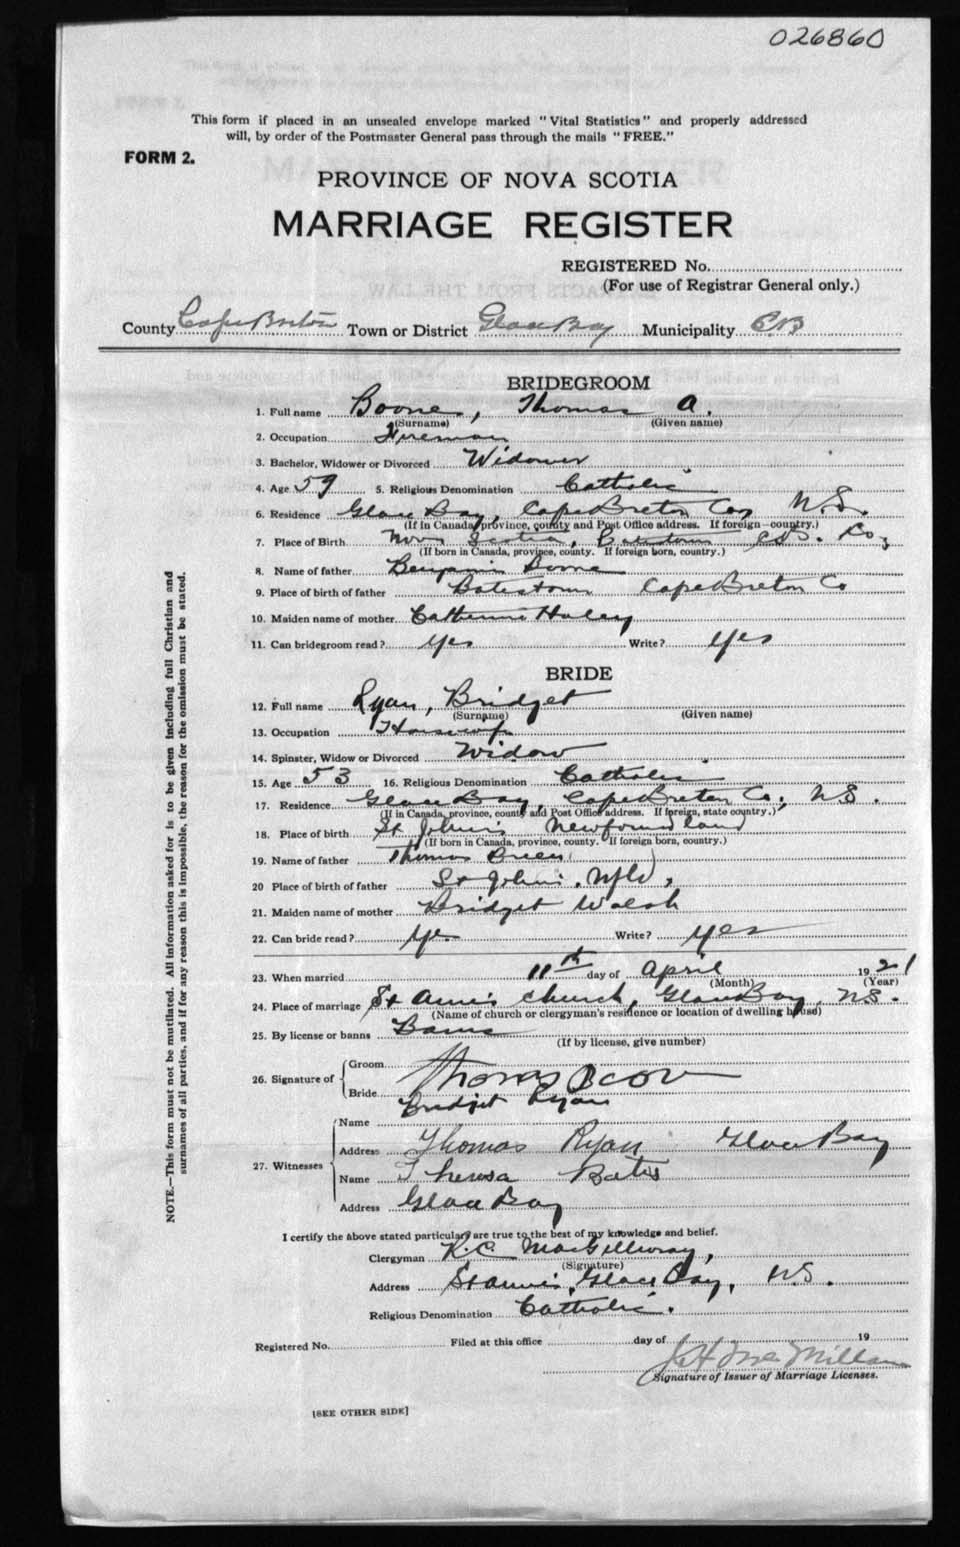 026860
This form if placed in an unsealed envelope marked "Vital Statistics" and properly addressed
will, by order of the Postmaster General pass through the mails "FREE."
FORM 2.
PROVINCE OF NOVA SCOTIA
MARRIAGE REGISTER
REGISTERED No.
(For use of Registrar General only.)
County Cape Breton Town or District Glace Bay Municipality C.B.
BRIDEGROOM
1. Full name Boone, Thomas A.
(Surname) (Given name)
2. Occupation Fireman
3. Bachelor, Widower or Divorced Widower
4. Age 59 5. Religious Denomination Catholic
6. Residence Glace Bay, Cape Breton Co, N.S.
(If in Canada, province, county and Post Office address. If foreign—country.)
7. Place of Birth Nova Scotia, Co,
(If born in Canada, province, county. If foreign born, country.)
8. Name of father Benjamin Boone
9. Place of birth of father Cape Breton Co
10. Maiden name of mother Catherine Haley
11. Can bridegroom read? Yes Write? Yes
BRIDE
12. Full name Ryan, Bridget
(Surname) (Given name)
13. Occupation Housewife
14. Spinster, Widow or Divorced Widow
15. Age 53 16. Religious Denomination Catholic
17. Residence Glace Bay, Cape Breton Co., N.S.
(If in Canada, province, county and Post Office address. If foreign, state country.)
18. Place of birth St John's Newfoundland
(If born in Canada, province, county. If foreign born, country.)
19. Name of father Thomas Breen
20 Place of birth of father St John's, Nfld,
21. Maiden name of mother Bridget Walsh
22. Can bride read? Yes Write? Yes
23. When married 11th day of April 1921
(Month) (Year)
24. Place of marriage St Ann's Church, Glace Bay, N.S.
(Name of church or clergyman's residence or location of dwelling house)
25. By license or banns Banns
(If by license, give number)
26. Signature of Groom Thomas
Bride Bridget Ryan
27. Witnesses Name
Address Thomas Ryan Glace Bay
Name Theresa Bates
Address Glace Bay
I certify the above stated particulars are true to the best of my knowledge and belief.
Clergyman R.C. MacGillivray,
(Signature)
Address St Ann's, Glace Bay, N.S.
Religious Denomination Catholic.
Registered No. Filed at this office day of 19
J H McMillan
Signature of Issuer of Marriage Licenses.
[SEE OTHER SIDE]
NOTE.—This form must not be mutilated. All information asked for is to be given including full Christian and
surnames of all parties, and if for any reason this is impossible, the reason for the omission must be stated.